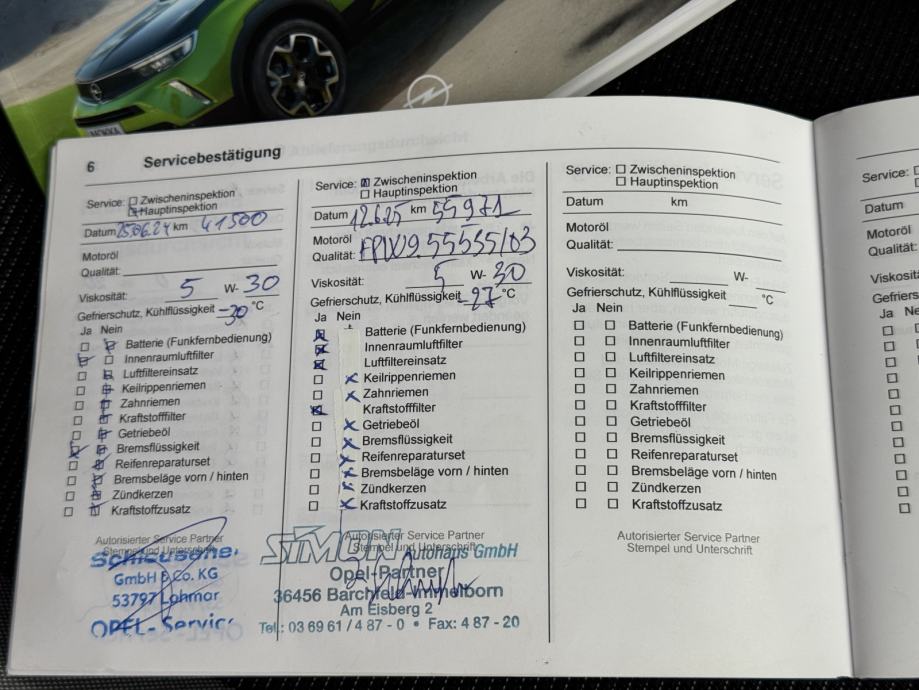 MOKKA
6 Servicebestätigung
Service: Zwischeninspektion
Hauptinspektion
Datum 25.06.24 km 41500
Motoröl
Qualität:
Viskosität: 5 W- 30
Gefrierschutz, Kühlflüssigkeit -30 °C
Ja Nein
Batterie (Funkfernbedienung)
Innenraumluftfilter
Luftfiltereinsatz
Keilrippenriemen
Zahnriemen
Kraftstofffilter
Getriebeöl
Bremsflüssigkeit
Reifenreparaturset
Bremsbeläge vorn / hinten
Zündkerzen
Kraftstoffzusatz
Autorisierter Service Partner
Stempel und Unterschrift
GmbH & Co. KG
53797 Lohmar
OPEL - Service
Service: Zwischeninspektion
Hauptinspektion
Datum 12.6.25 km 55971
Motoröl
Qualität: FPW9.55535/03
Viskosität: 5 W- 30
Gefrierschutz, Kühlflüssigkeit -27 °C
Ja Nein
Batterie (Funkfernbedienung)
Innenraumluftfilter
Luftfiltereinsatz
Keilrippenriemen
Zahnriemen
Kraftstofffilter
Getriebeöl
Bremsflüssigkeit
Reifenreparaturset
Bremsbeläge vorn / hinten
Zündkerzen
Kraftstoffzusatz
Autorisierter Service Partner
Stempel und Unterschrift
SIMON Autohaus GmbH
Opel-Partner
36456 Barchfeld-Immelborn
Am Eisberg 2
Tel.: 03 69 61 / 4 87 - 0 • Fax: 4 87 - 20
Service: Zwischeninspektion
Hauptinspektion
Datum km
Motoröl
Qualität:
Viskosität: W-
Gefrierschutz, Kühlflüssigkeit °C
Ja Nein
Batterie (Funkfernbedienung)
Innenraumluftfilter
Luftfiltereinsatz
Keilrippenriemen
Zahnriemen
Kraftstofffilter
Getriebeöl
Bremsflüssigkeit
Reifenreparaturset
Bremsbeläge vorn / hinten
Zündkerzen
Kraftstoffzusatz
Autorisierter Service Partner
Stempel und Unterschrift
Service:
Datum
Motoröl
Qualität:
Ja